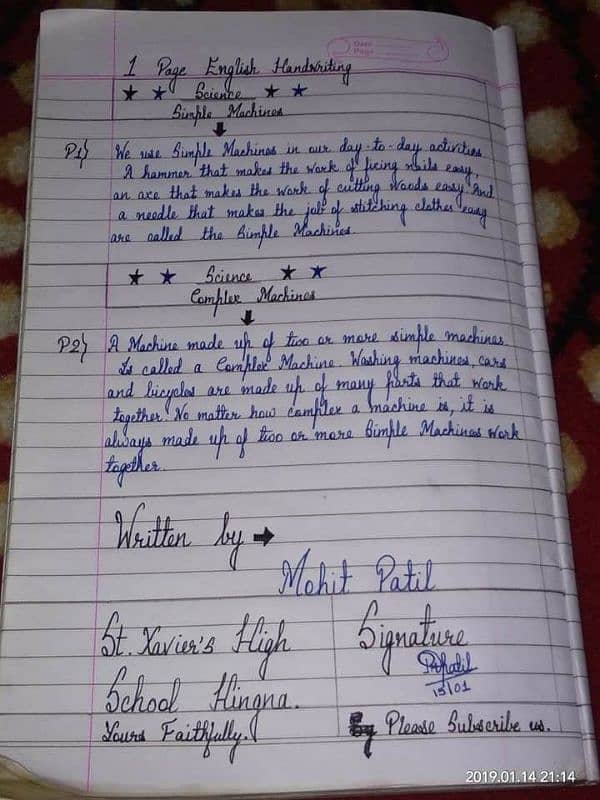 Date
Page
1 Page English Handwriting
★ ★ Science ★ ★
Simple Machines
P1) We use Simple Machines in our day-to-day activities
A hammer that makes the work of fixing nails easy,
an axe that makes the work of cutting woods easy And
a needle that makes the job of stitching clothes easy
are called the Simple Machines.
★ ★ Science ★ ★
Complex Machines
P2) A Machine made up of two or more simple machines
Is called a Complex Machine. Washing machines, cars
and bicycles are made up of many parts that work
together. No matter how complex a machine is, it is
always made up of two or more Simple Machines work
together.
Written by →
Mohit Patil
St. Xavier's High
School Hingna.
Yours Faithfully.
Signature
15/01
Please Subscribe us.
2019.01.14 21:14